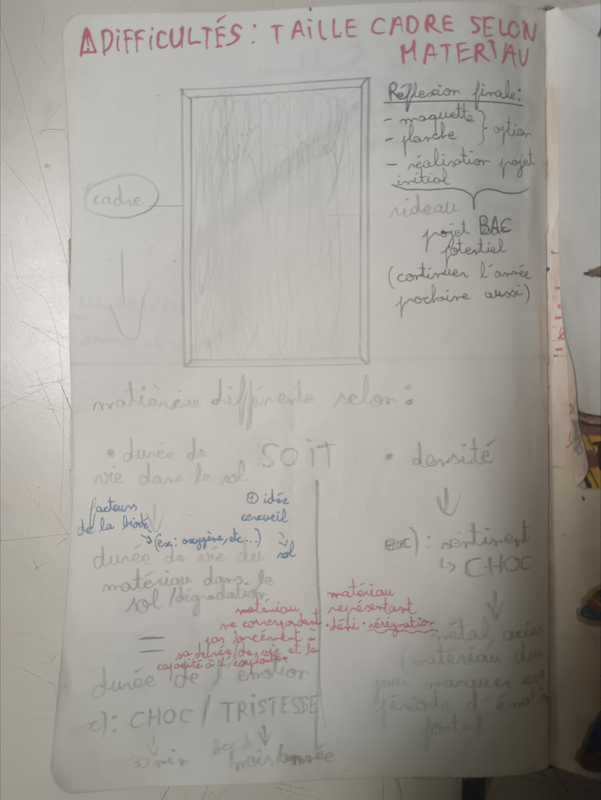 ⚠ DIFFICULTÉS : TAILLE CADRE SELON
MATERIAU
Réflexion finale :
- maquette
- planche } option
- réalisation projet
initial
rideau
projet BAC
potentiel
(continuer l'année
prochaine aussi)
cadre
différente selon :
• durée de
vie dans le sol
SOIT
• densité
facteurs
de la biodé
↳ (ex : oxygène, etc...)
⊕ idée
cercueil
↳ sol
durée de vie du
matériau dans le
sol / dégradation
=
durée de l'émotion
ex) : CHOC / TRISTESSE
30 min
mois/année
matériau
ne correspondent
pas forcément à
sa durée de vie et la
capacité à l'exploiter
matériau
représentant
déni • résignation
ex) : sentiment
↳ CHOC
métal, acier
matériau
pour marquer une
période d'émotion
forte)